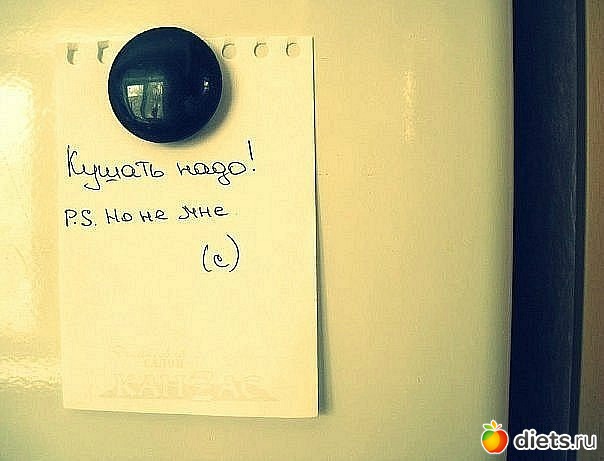 Кушать надо!
P.S. Но не мне
(с)
САЛОН
КАНЗАС
diets.ru